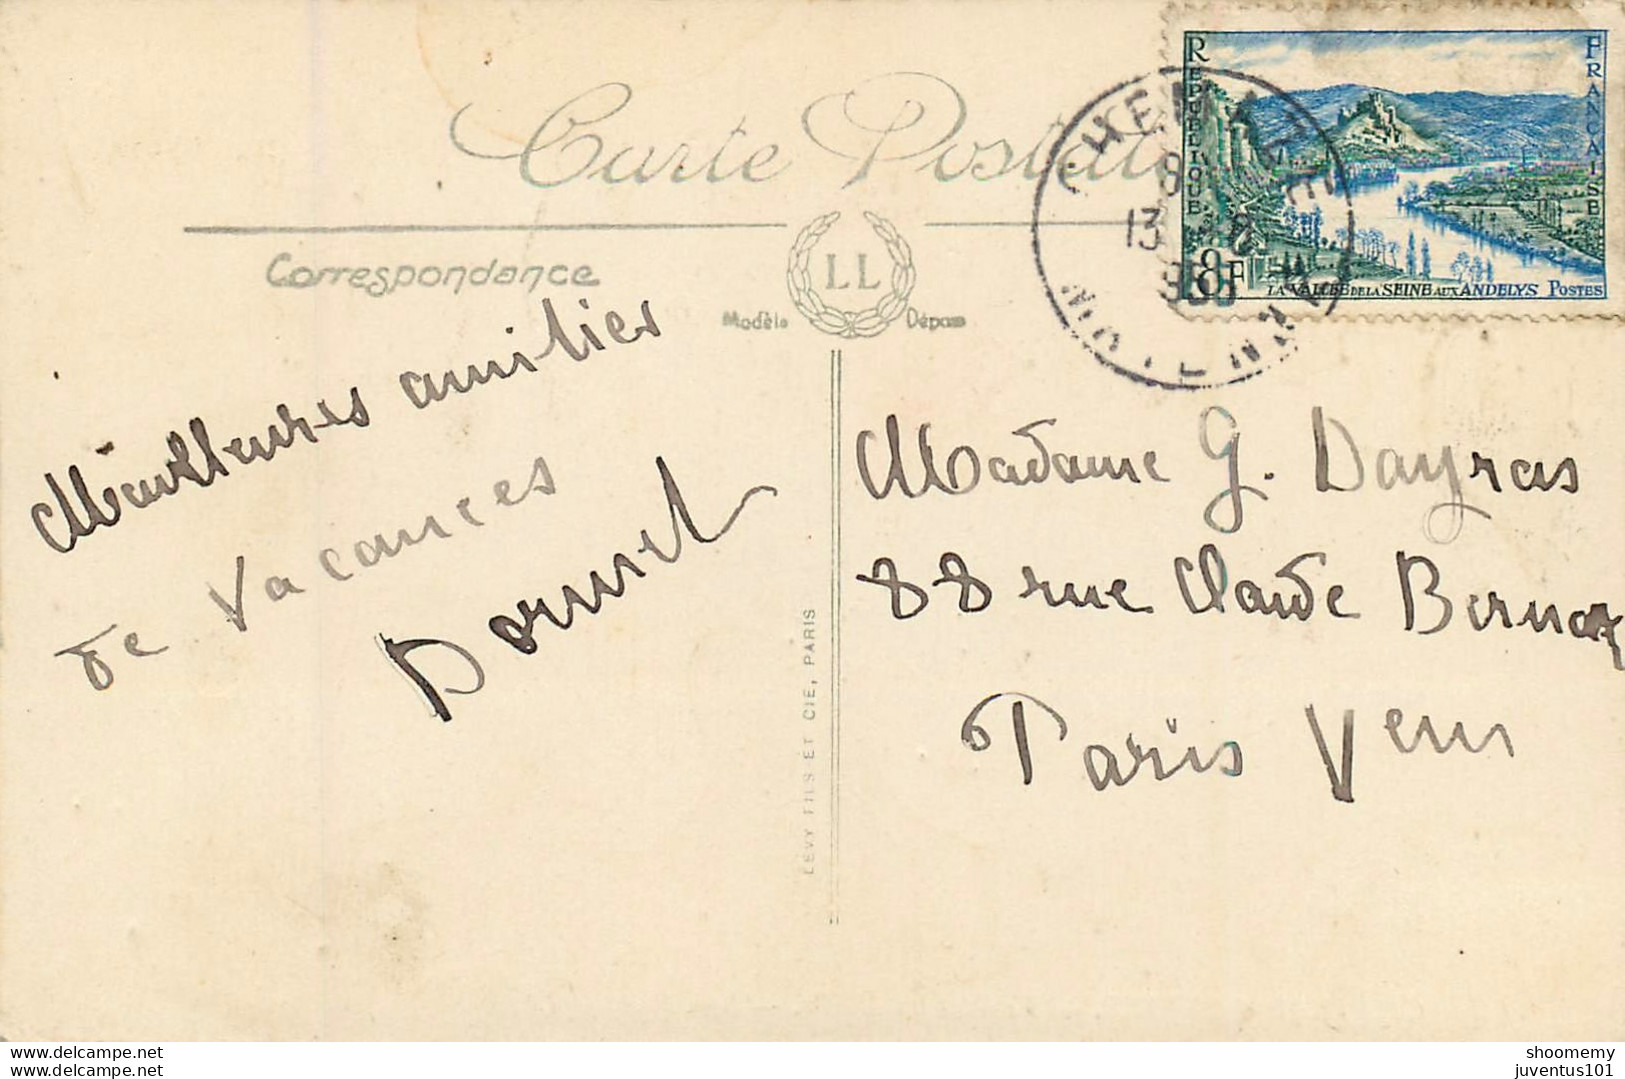 Carte Postale
Correspondance
LL
Modèle Déposé
RÉPUBLIQUE FRANÇAISE
8F
LA VALLÉE DE LA SEINE AUX ANDELYS POSTES
13
Meilleures amitiés
de Vacances
LEVY FILS ET CIE, PARIS
Madame G. Dayras
88 rue Claude Bernard
Paris Vem
www.delcampe.net
shoomemy
juventus101